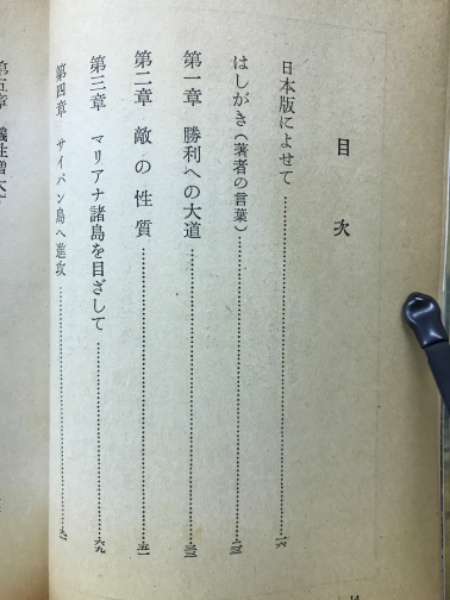 目次
日本版によせて……一六
はしがき(著者の言葉)……二三
第一章 勝利への大道……三三
第二章 敵の性質……五一
第三章 マリアナ諸島を目ざして……六九
第四章 サイパン島へ進攻……九一
第五章 犠牲増大